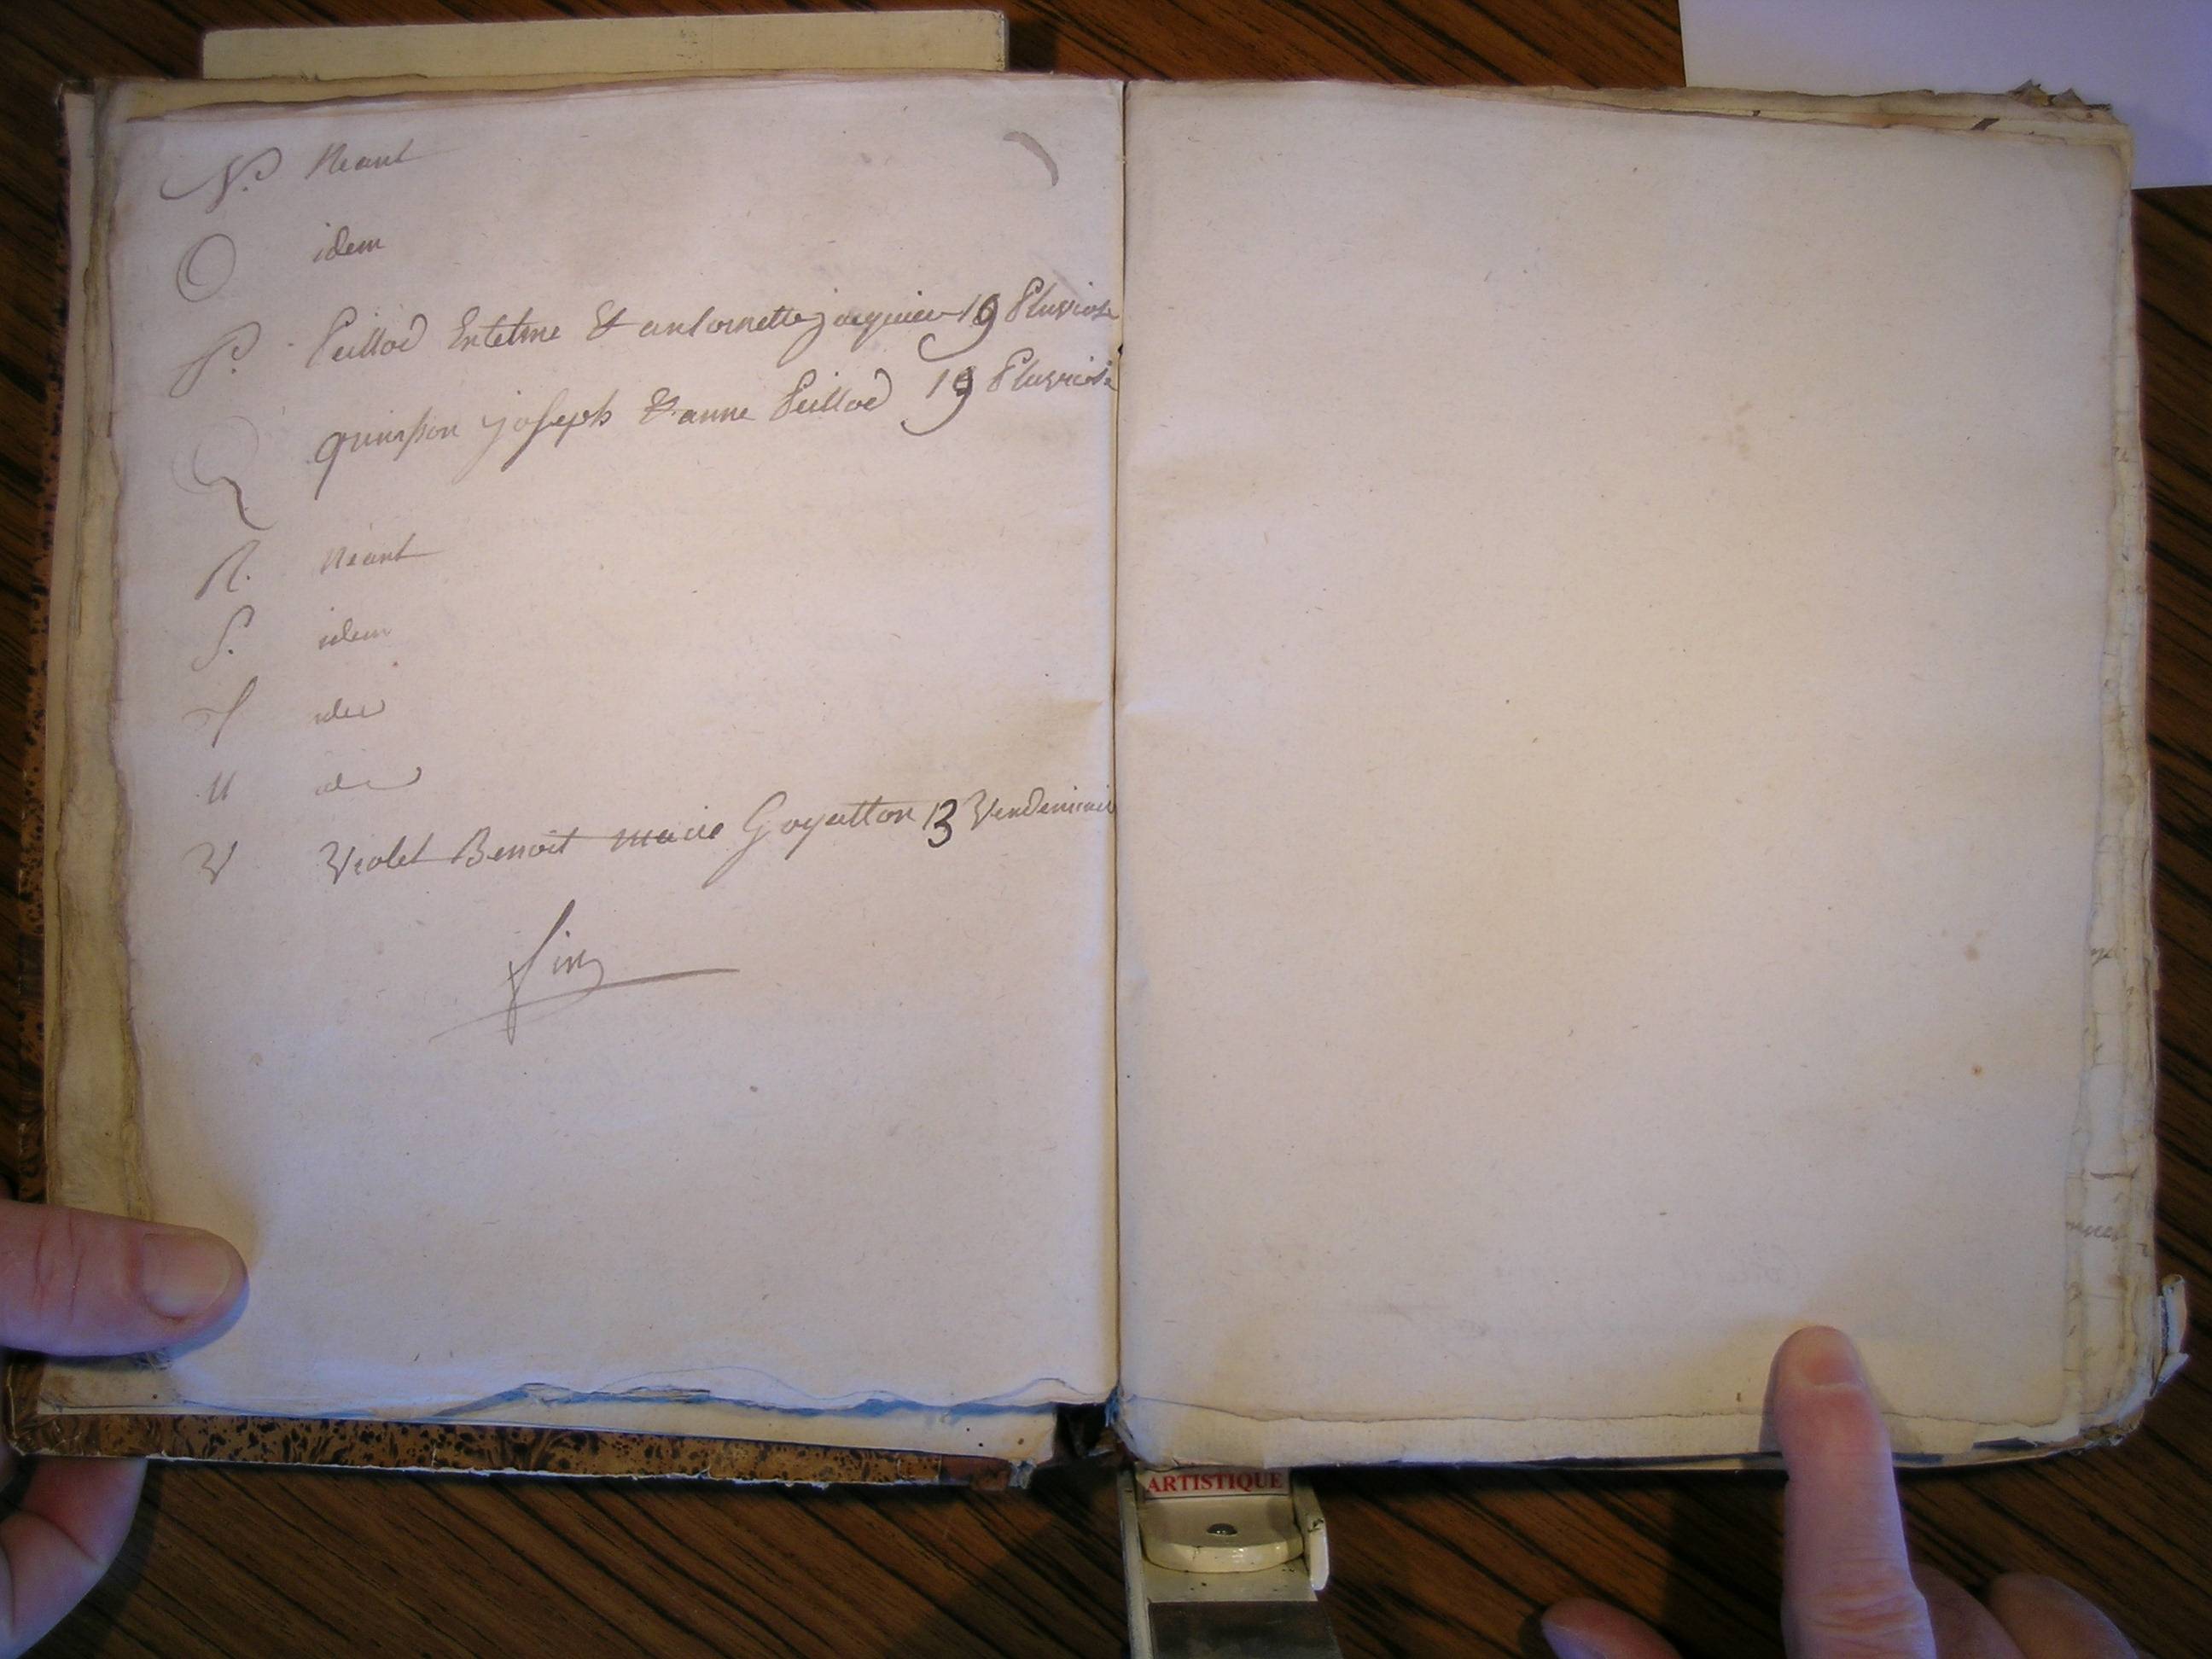 N. Neant
O idem
P. Peillod Entelme & antoinette jacquier 19 Pluviose
Q quinsson joseph & anne Peillod 19 Pluviose
R. Neant
S. idem
T idem
U idem
V Violet Benoit marie Goyatton 13 Vendemiair
fin
ARTISTIQUE